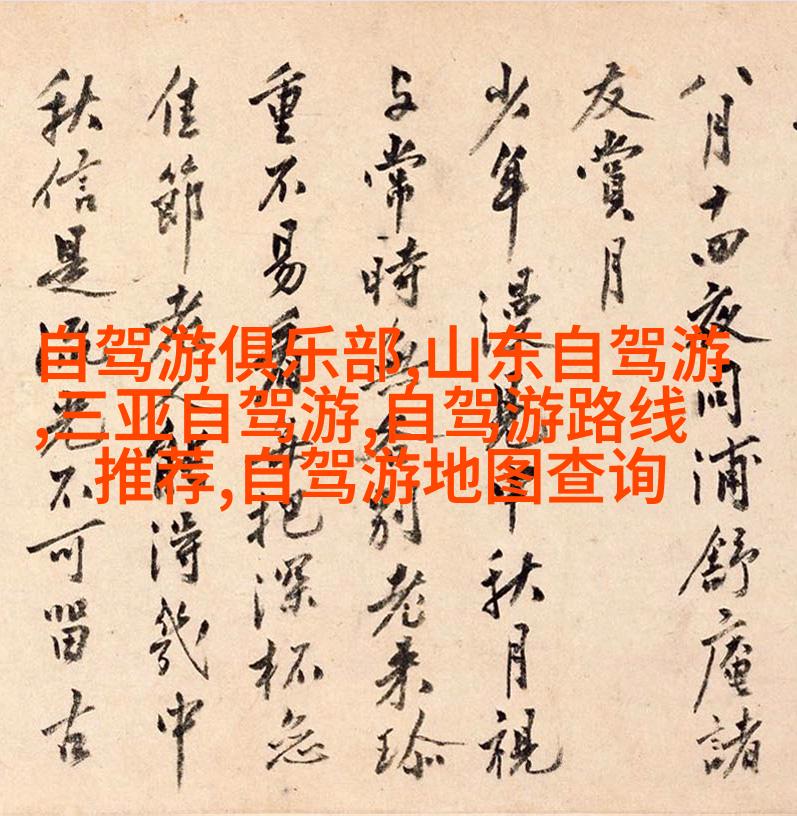 自驾游俱乐部,山东自驾游
,三亚自驾游,自驾游路线
推荐,自驾游地图查询
八月十四夜同浦舒庵諸
友賞月
少年漫見中秋月視
与常時無各別老来珍
重不易看毎把深杯
佳節老人能得幾中
秋信是流光不可留古